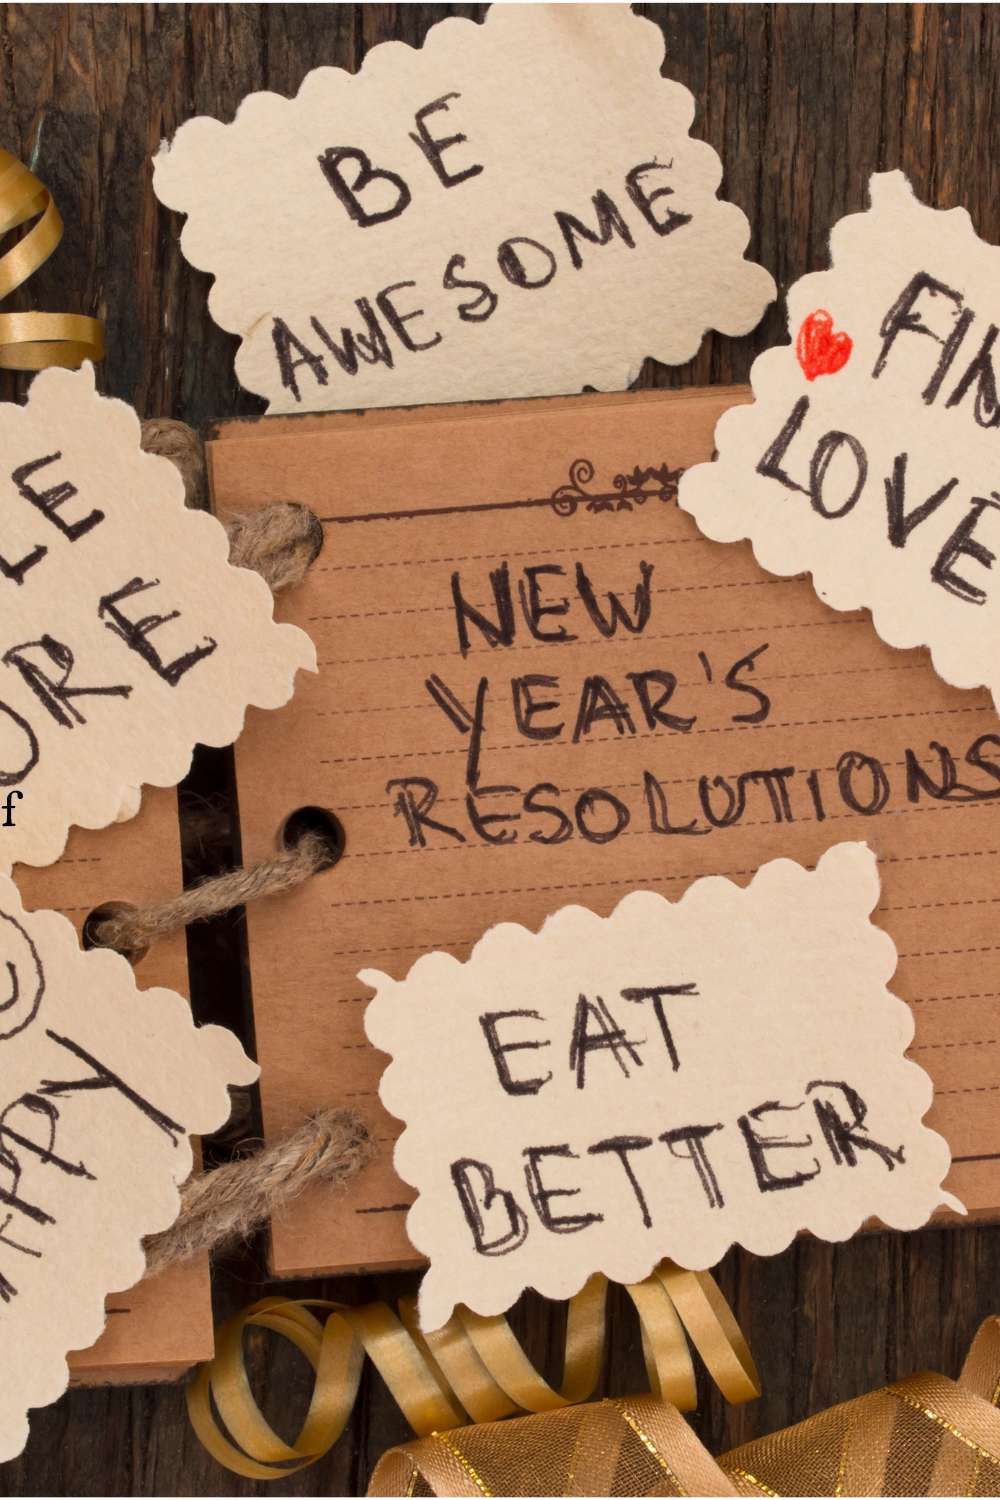 BE
AWESOME
FIN
LOVE
LE
ORE
NEW
YEAR'S
RESOLUTIONS
f
PPY
EAT
BETTER